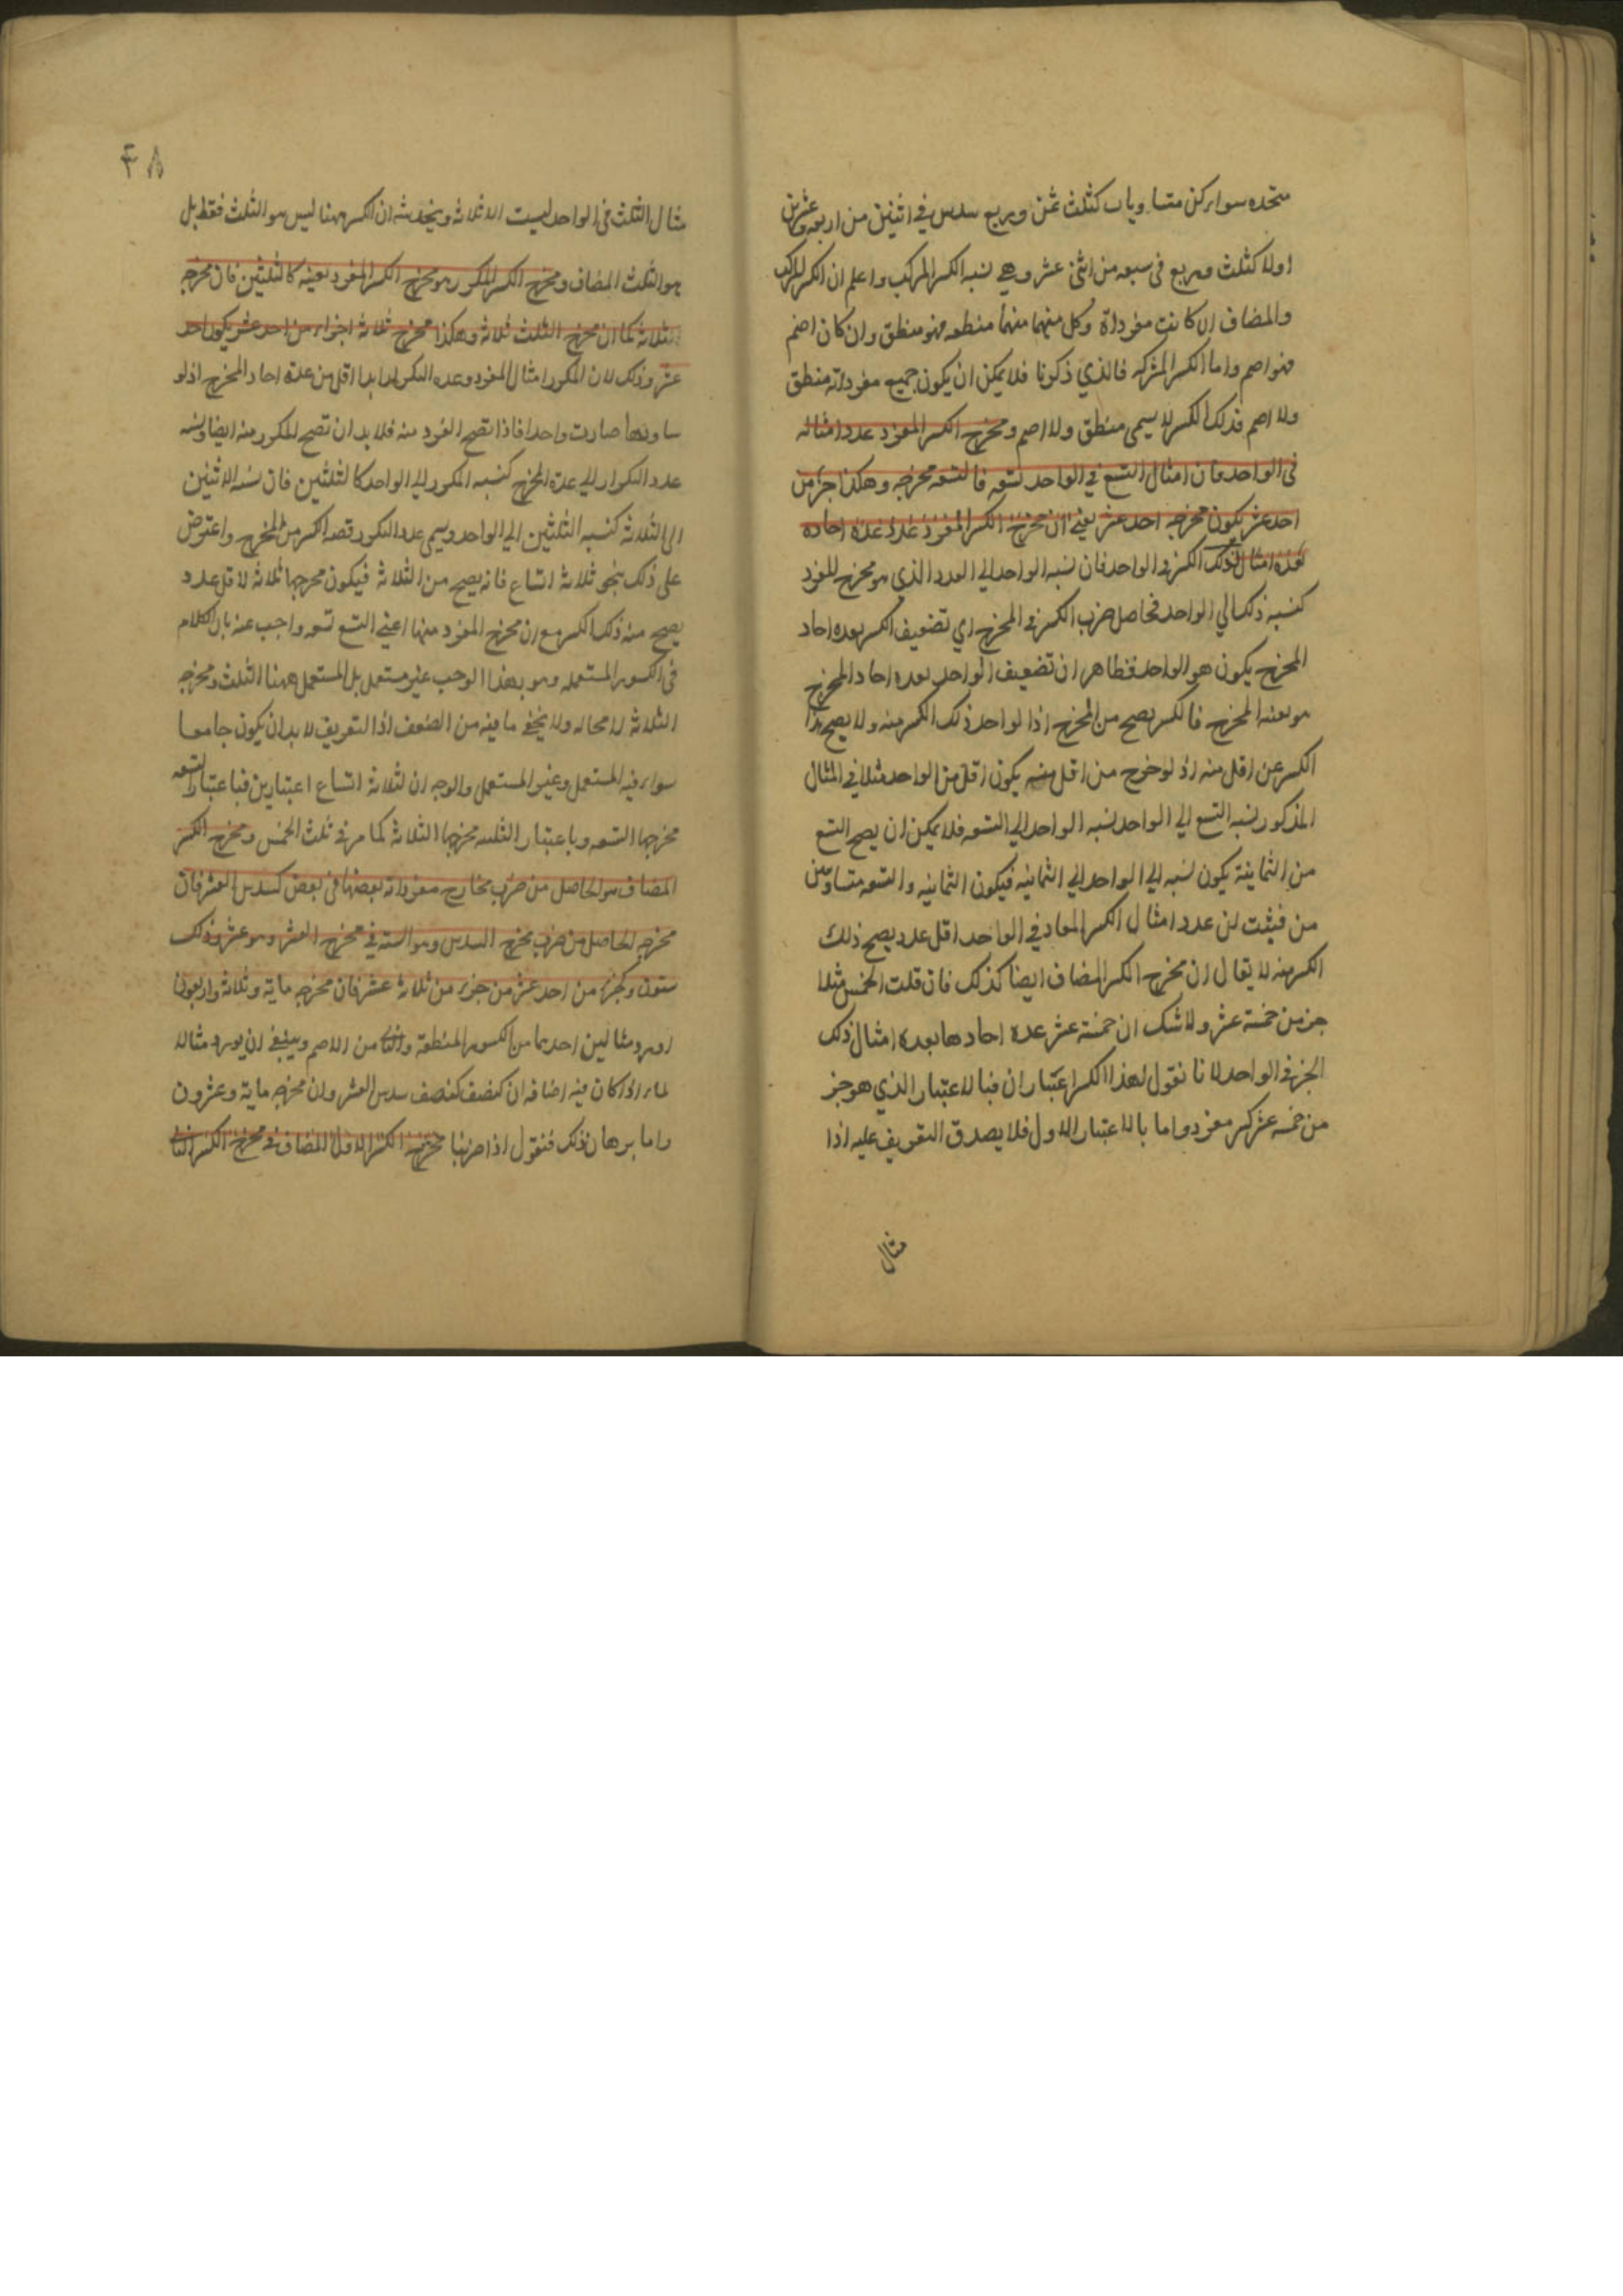 متحده سواء كن متساويات كثلث ثمن وربع سدس في اثنين من اربعه وعشرين
اولا كثلث وربع في سبعه من اثنى عشر وهي نسبه الكسر المركب واعلم ان الكسر المركب
والمضاف ان كانت مفرداته وكل منهما منطقه فهو منطق وان كان اصم
فهو اصم واما الكسر الذي ذكرنا فلا يمكن ان يكون جميع مفرداته منطق
ولا اصم فذلك الكسر لا يسمى منطق ولا اصم ومخرج الكسر المفرد عدد امثاله
في الواحد فان امثال التسع في الواحد تسعه فالتسعه مخرجه وهكذا جزء من
احد عشر يكون مخرجه احد عشر يعني ان مخرج الكسر المفرد عدد عدة احاده
كعدة امثال ذلك الكسر في الواحد فان نسبه الواحد الي العدد الذي هو مخرج المفرد
كنسبه ذلك الي الواحد فحاصل ضرب الكسر في المخرج اي تضعيف الكسر بعده احاد
المخرج يكون هو الواحد فظاهر ان تضعيف الواحد بعده احاد المخرج
هو بعينه المخرج فالكسر يصح من المخرج اذا لواحد ذلك الكسر منه ولا يصح هذا
الكسر عن اقل منه اذ لو خرج من اقل منه يكون اقل من الواحد مثلا في المثال
المذكور نسبه التسع الي الواحد نسبه الواحد الي التسعه فلا يمكن ان يصح التسع
من الثمانية يكون نسبه الي الواحد الي الثمانيه فيكون الثمانيه والتسعه متساويتين
من فثبت ان عدد امثال الكسر المعاد في الواحد اقل عدد يصح ذلك
الكسر منه لا يقال ان مخرج الكسر المضاف ايضا كذلك فان قلت الخمس مثلا
جزء من خمسة عشر ولا شك ان خمسة عشر عدة احادها بعده امثال ذلك
الجزء في الواحد لانا نقول لهذا الكسر اعتباران فبالاعتبار الذي هو جزء
من خمسه عشر كسر مفرد واما بالاعتبار الاول فلا يصدق التعريف عليه اذا
مثال
٤٨
مثال الثلث في الواحد ليست الا ثلاثه ويخدشه ان الكسر ههنا ليس هو الثلث فقط بل
هو الثلث المضاف ومخرج الكسر المكرر هو مخرج الكسر المفرد بعينه كالثلثين فان مخرجه
ثلاثه كما ان مخرج الثلث ثلاثه وهكذا مخرج ثلاثة اجزاء من احد عشر يكون احد
عشر وذلك لان المكرر امثال المفرد وعده المكرر ابدا اقل من عدة احاد المخرج اذ لو
ساوتها صارت واحدا فاذا تصح المفرد منه فلا بد ان تصح المكرر منه ايضا ونسبه
عدد التكرار الي عدة المخرج كنسبه المكرر الي الواحد كالثلثين فان نسبه الاثنين
الى الثلاثه كنسبه الثلثين الي الواحد ويسمى عدد المكرر الكسر من المخرج واعترض
على ذلك بنحو ثلاثة اتساع فانه يصح من الثلاثة فيكون مخرجها ثلاثة لا قل عدد
يصح منه ذلك الكسر مع ان مخرج المفرد منها اعني التسع تسعه واجيب عنه بان الكلام
في الكسور المستعمله وهو بهذا الوجه غير مستعمل بل المستعمل ههنا الثلث ومخرجه
الثلاثة لا محاله ولا يخفى ما فيه من الضعف اذ التعريف لا بد ان يكون جامعا
سواء فيه المستعمل وغير المستعمل والوجه ان لثلاثة اتساع اعتبارين فباعتبار التسعه
مخرجها التسعه وباعتبار الثلث مخرجها الثلاثة كما مر في ثلث الخمس ومخرج الكسر
المضاف هو الحاصل من ضرب مخارج مفرداته بعضها في بعض كسدس العشر فان
مخرجه الحاصل من ضرب مخرج السدس وهو الستة في مخرج العشر وهو عشرة وذلك
ستون وكجزء من احد عشر من جزء من ثلاثة عشر فان مخرجه مايه وثلاثة واربعون
اورد مثالين احدهما من الكسور المنطقة والثاني من الاصم وينبغي ان يورد مثاله
لما اذا كان فيه اضافه ان كنصف سدس العشر وان مخرجه مايه وعشرون
واما برهان ذلك فنقول اذا ضربنا مخرج الكسر الاول المضاف في مخرج الكسر الثاني